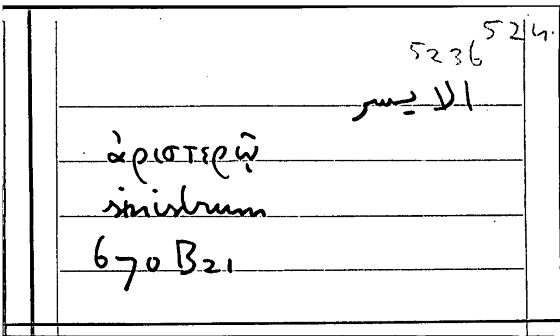 524.
5236
الايسر
ἀριστερῷ
sinistrum
670 B21